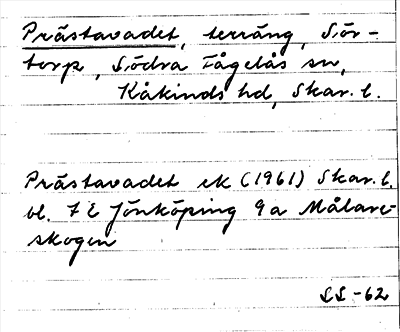 Prästavadet, terräng, Sör-
torp, Södra Fågelås sn,
Kåkinds hd, Skar. l.
Prästavadet ek (1961) Skar. l.
bl. 7 E Jönköping 9a Målare-
skogen
SS -62